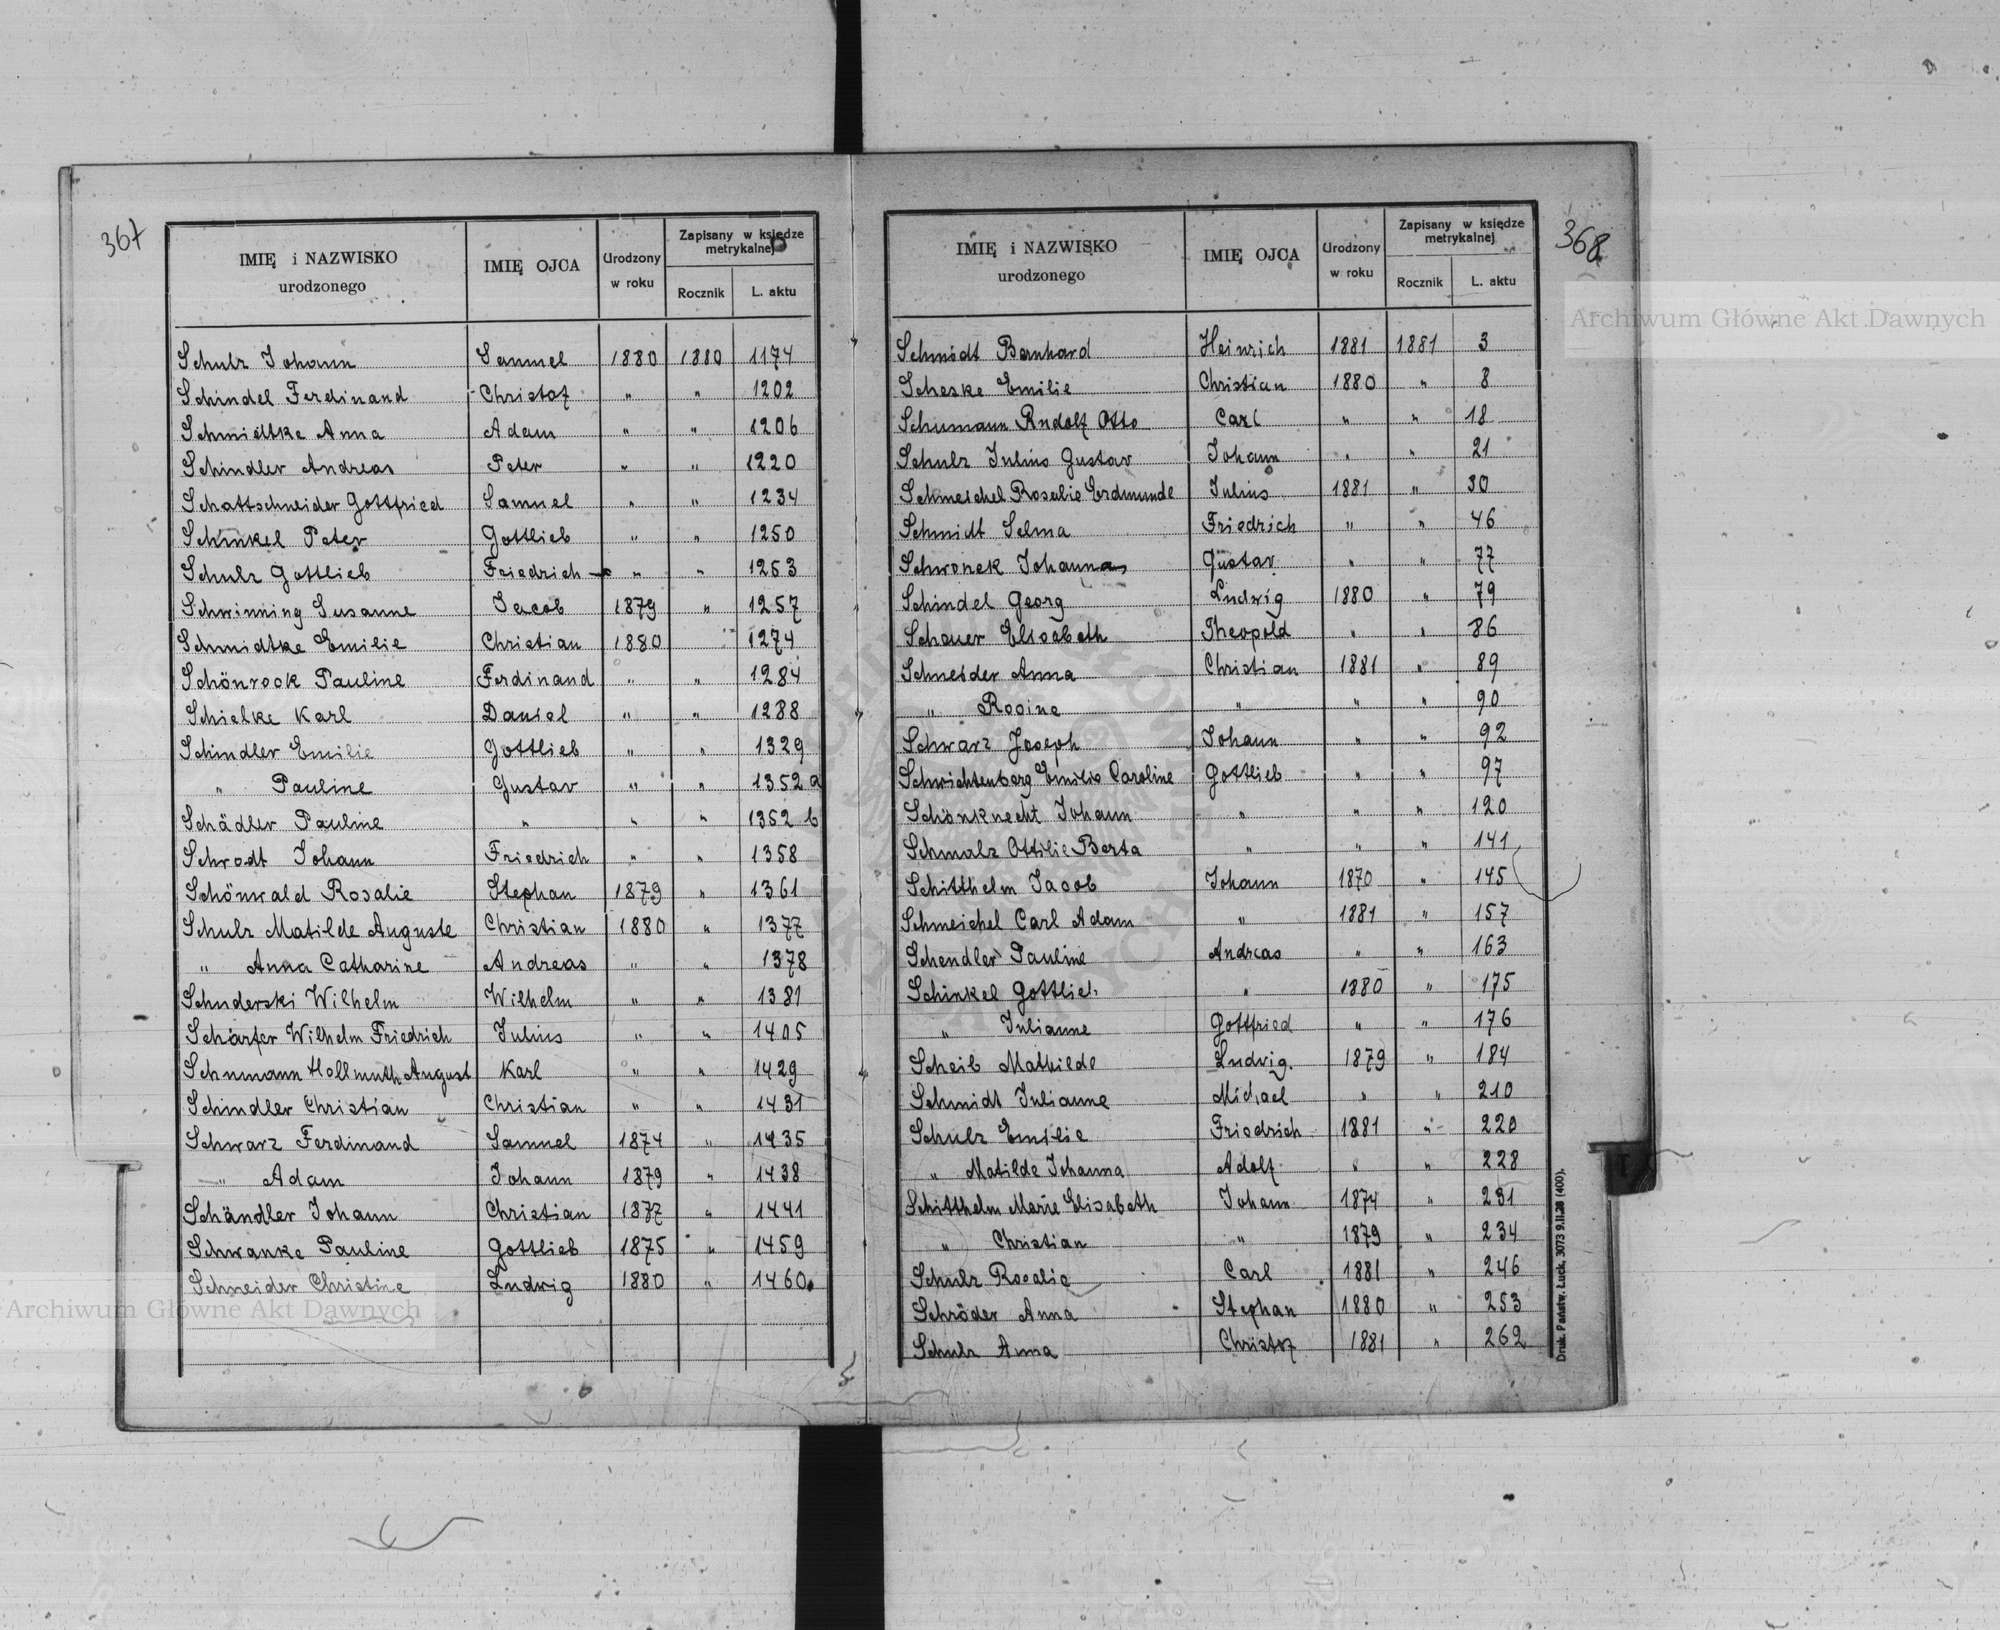 367
IMIĘ i NAZWISKO urodzonego IMIĘ OJCA Urodzony w roku Zapisany w księdze metrykalnej Rocznik L. aktu
Schulz Johann Samuel 1880 1880 1174
Schindel Ferdinand Christof " " 1202
Schmidtke Anna Adam " " 1206
Schindler Andreas Peter " " 1220
Schattschneider Gottfried Samuel " " 1234
Schinkel Peter Gottlieb " " 1250
Schulz Gottlieb Friedrich " " 1253
Schwinning Susanne Jacob 1879 " 1257
Schmidtke Emilie Christian 1880 " 1274
Schönrook Pauline Ferdinand " " 1284
Schielke Karl Daniel " " 1288
Schindler Emilie Gottlieb " " 1329
" Pauline Gustav " " 1352 a
Schädler Pauline " " " 1352 b
Schrodt Johann Friedrich " " 1358
Schönwald Rosalie Stephan 1879 " 1361
Schulz Matilde Auguste Christian 1880 " 1377
" Anna Catharine Andreas " " 1378
Schuderski Wilhelm Wilhelm " " 1381
Schärfer Wilhelm Friedrich Julius " " 1405
Schumann Hellmuth August Karl " " 1429
Schindler Christian Christian " " 1431
Schwarz Ferdinand Samuel 1874 " 1435
" Adam Johann 1879 " 1438
Schändler Johann Christian 1877 " 1441
Schwanke Pauline Gottlieb 1875 " 1459
Schneider Christine Ludwig 1880 " 1460
368
IMIĘ i NAZWISKO urodzonego IMIĘ OJCA Urodzony w roku Zapisany w księdze metrykalnej Rocznik L. aktu
Schmidt Bernhard Heinrich 1881 1881 3
Scheske Emilie Christian 1880 " 8
Schumann Rudolf Otto Carl " " 18
Schulz Julius Gustav Johann " " 21
Schmeichel Rosalie Erdmunde Julius 1881 " 30
Schmidt Selma Friedrich " " 46
Schwonek Johannas Gustav " " 77
Schindel Georg Ludwig 1880 " 79
Schauer Elisabeth Theopold " " 86
Schneider Anna Christian 1881 " 89
" Rosine " " " 90
Schwarz Joseph Johann " " 92
Schwichtenberg Emilie Caroline Gottlieb " " 97
Schönknecht Johann " " " 120
Schmalz Ottilie Berta " " " 141
Schitthelm Jacob Johann 1870 " 145
Schmeichel Carl Adam " 1881 " 157
Schendler Pauline Andreas " " 163
Schinkel Gottlieb " 1880 " 175
" Julianne Gottfried " " 176
Scheib Mathilde Ludwig 1879 " 184
Schmidt Julianne Michael " " 210
Schulz Emilie Friedrich 1881 " 220
" Matilde Johanna Adolf " " 228
Schitthelm Marie Elisabeth Johann 1874 " 231
" Christian " 1879 " 234
Schulz Rosalie Carl 1881 " 246
Schröder Anna Stephan 1880 " 253
Schulz Anna Christof 1881 " 262
Druk. Państw. Łuck. 3073 9.II.28 (400).
Archiwum Główne Akt Dawnych
Archiwum Główne Akt Dawnych